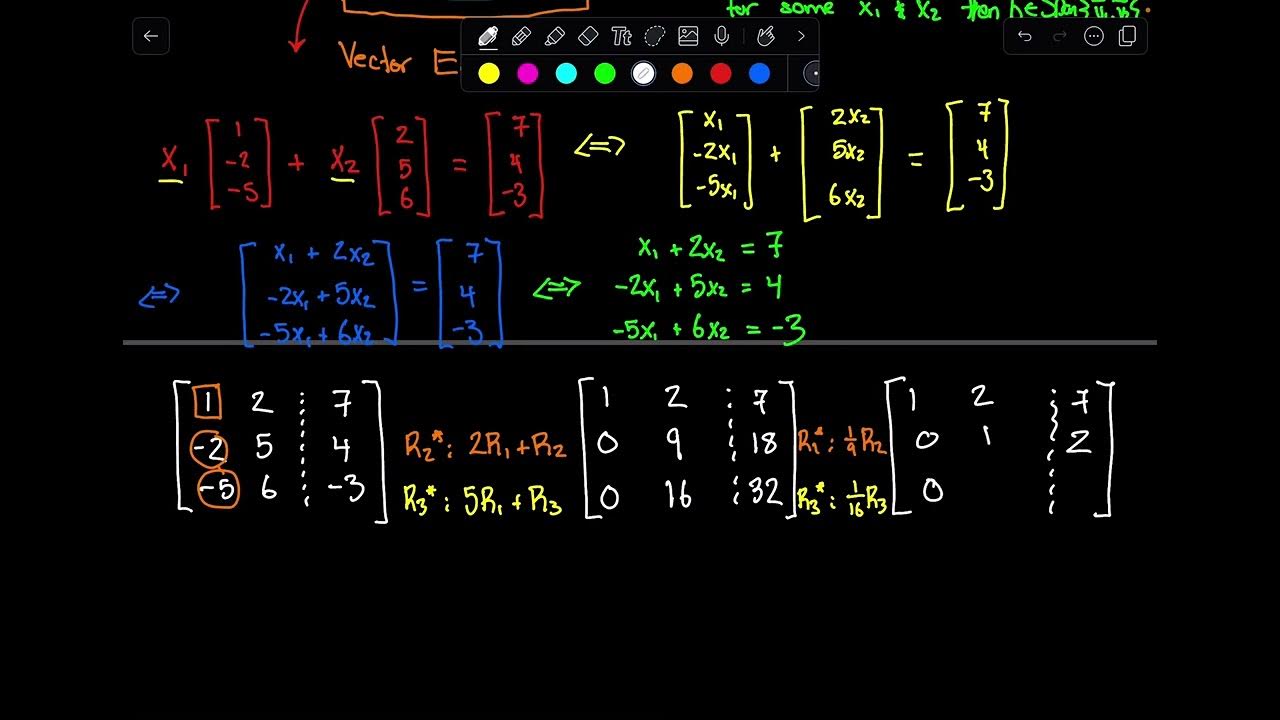 for some x₁ & x₂ then b∈Span{v₁,v₂}.
Vector E
Tt
x₁ [1 -2 -5] + x₂ [2 5 6] = [7 4 -3] ⟺ [x₁ -2x₁ -5x₁] + [2x₂ 5x₂ 6x₂] = [7 4 -3]
⟺ [x₁ + 2x₂ -2x₁ + 5x₂ -5x₁ + 6x₂] = [7 4 -3] ⟺
x₁ + 2x₂ = 7
-2x₁ + 5x₂ = 4
-5x₁ + 6x₂ = -3
1 2 ⋮ 7
-2 5 ⋮ 4
-5 6 ⋮ -3
R₂*: 2R₁ + R₂
R₃*: 5R₁ + R₃
1 2 ⋮ 7
0 9 ⋮ 18
0 16 ⋮ 32
R₁*: 1/9 R₂
R₃*: 1/16 R₃
1 2 ⋮ 7
0 1 ⋮ 2
0 ⋮